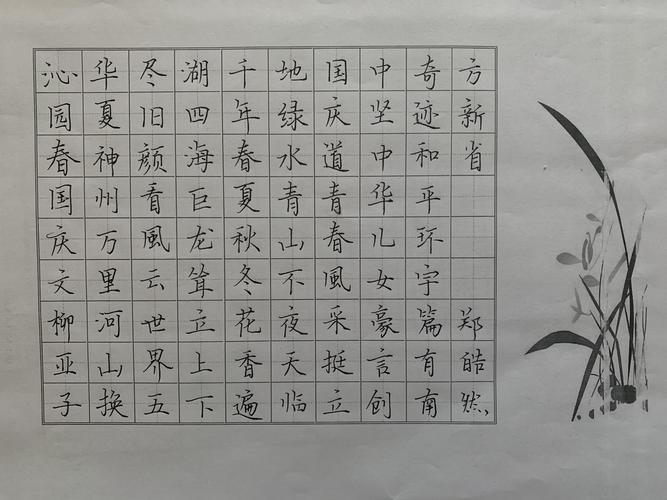 沁园春国庆文柳亚子
华夏神州万里河山换
尽旧颜看風云世界五
湖四海巨龙耸立上下
千年春夏秋冬花香遍
地绿水青山不夜天临
国庆道青春風采挺立
中坚中华儿女豪言创
奇迹和平环宇篇有南
方新省 郑皓然